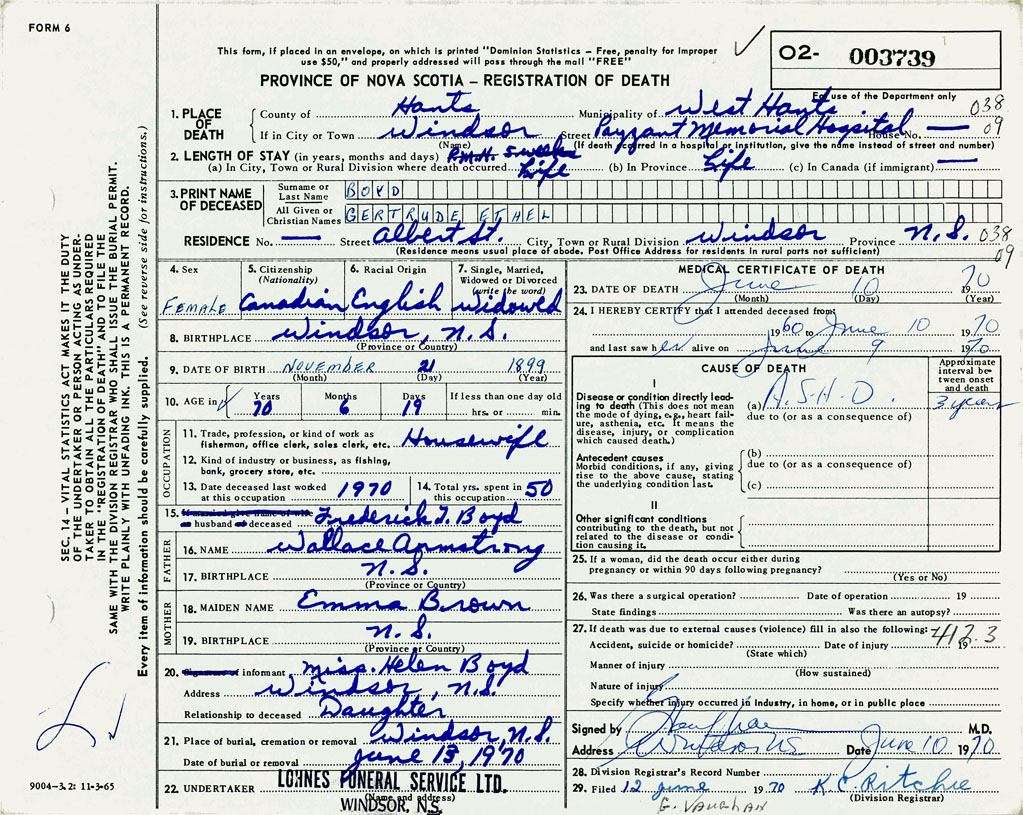 FORM 6
This form, if placed in an envelope, on which is printed "Dominion Statistics – Free, penalty for improper
use $50," and properly addressed will pass through the mail "FREE"
O2- 003739
PROVINCE OF NOVA SCOTIA – REGISTRATION OF DEATH
For use of the Department only
038
09
1. PLACE OF DEATH
County of Hants Municipality of West Hants
If in City or Town Windsor Street Payzant Memorial Hospital House No. —
(Name) (If death occurred in a hospital or institution, give the name instead of street and number)
2. LENGTH OF STAY (in years, months and days) P.M.H. 5 weeks
(a) In City, Town or Rural Division where death occurred Life (b) In Province Life (c) In Canada (if immigrant) —
3. PRINT NAME OF DECEASED
Surname or Last Name BOYD
All Given or Christian Names GERTRUDE ETHEL
RESIDENCE No. — Street Albert St. City, Town or Rural Division Windsor Province N.S. 038
09
(Residence means usual place of abode. Post Office Address for residents in rural parts not sufficient)
4. Sex FEMALE
5. Citizenship (Nationality) Canadian
6. Racial Origin English
7. Single, Married, Widowed or Divorced (write the word) Widowed
8. BIRTHPLACE Windsor, N.S.
(Province or Country)
9. DATE OF BIRTH NOVEMBER 21 1899
(Month) (Day) (Year)
10. AGE in Years 70 Months 6 Days 19 If less than one day old
hrs. or min.
OCCUPATION
11. Trade, profession, or kind of work as
fisherman, office clerk, sales clerk, etc. Housewife
12. Kind of industry or business, as fishing,
bank, grocery store, etc.
13. Date deceased last worked at this occupation 1970
14. Total yrs. spent in this occupation 50
15. If married give name of wife
or husband of deceased Frederick T. Boyd
FATHER
16. NAME Wallace Armstrong
17. BIRTHPLACE N.S.
(Province or Country)
MOTHER
18. MAIDEN NAME Emma Brown
19. BIRTHPLACE N.S.
(Province or Country)
20. Signature of informant Miss. Helen Boyd
Address Windsor, N.S.
Relationship to deceased Daughter
21. Place of burial, cremation or removal Windsor, N.S.
Date of burial or removal June 13, 1970
22. UNDERTAKER LOHNES FUNERAL SERVICE LTD.
(Name and address)
WINDSOR, N.S.
MEDICAL CERTIFICATE OF DEATH
23. DATE OF DEATH June 10 1970
(Month) (Day) (Year)
24. I HEREBY CERTIFY that I attended deceased from
1960 to June 10 1970
and last saw her alive on June 9 1970
CAUSE OF DEATH
Approximate interval between onset and death
I
Disease or condition directly leading to death (This does not mean the mode of dying, e.g., heart failure, asthenia, etc. It means the disease, injury, or complication which caused death.)
(a) A.S.H.D. 3 years
due to (or as a consequence of)
Antecedent causes
Morbid conditions, if any, giving rise to the above cause, stating the underlying condition last.
(b)
due to (or as a consequence of)
(c)
II
Other significant conditions
contributing to the death, but not related to the disease or condition causing it.
25. If a woman, did the death occur either during
pregnancy or within 90 days following pregnancy?
(Yes or No)
26. Was there a surgical operation? Date of operation 19
State findings Was there an autopsy?
27. If death was due to external causes (violence) fill in also the following: 412.3
Accident, suicide or homicide? Date of injury 19
(State which)
Manner of injury
(How sustained)
Nature of injury
Specify whether injury occurred in industry, in home, or in public place
Signed by M.D.
Address Windsor NS Date June 10 1970
28. Division Registrar's Record Number
29. Filed 12 June 1970 K.C. Ritchie
(Division Registrar)
G. Vaughan
SEC. 14 – VITAL STATISTICS ACT MAKES IT THE DUTY
OF THE UNDERTAKER OR PERSON ACTING AS UNDER-
TAKER TO OBTAIN ALL THE PARTICULARS REQUIRED
IN THE "REGISTRATION OF DEATH" AND TO FILE THE
SAME WITH THE DIVISION REGISTRAR WHO SHALL ISSUE BURIAL PERMIT.
WRITE PLAINLY WITH UNFADING INK. THIS IS A PERMANENT RECORD.
Every item of information should be carefully supplied. (See reverse side for instructions.)
9004-3.2: 11-3-65